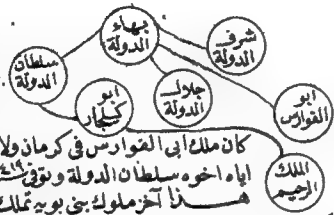 شرف
الدولة
بهاء
الدولة
سلطان
الدولة
جلال
الدولة
ابو
كيلجار
ابو
الفوارس
الملك
الرحيم
كان ملك ابى الفوارس فى كرمان ولا
اياه اخوه سلطان الدولة وتوفى سنة ٤١٩
هذا آخر ملوك بنى بويه تملك